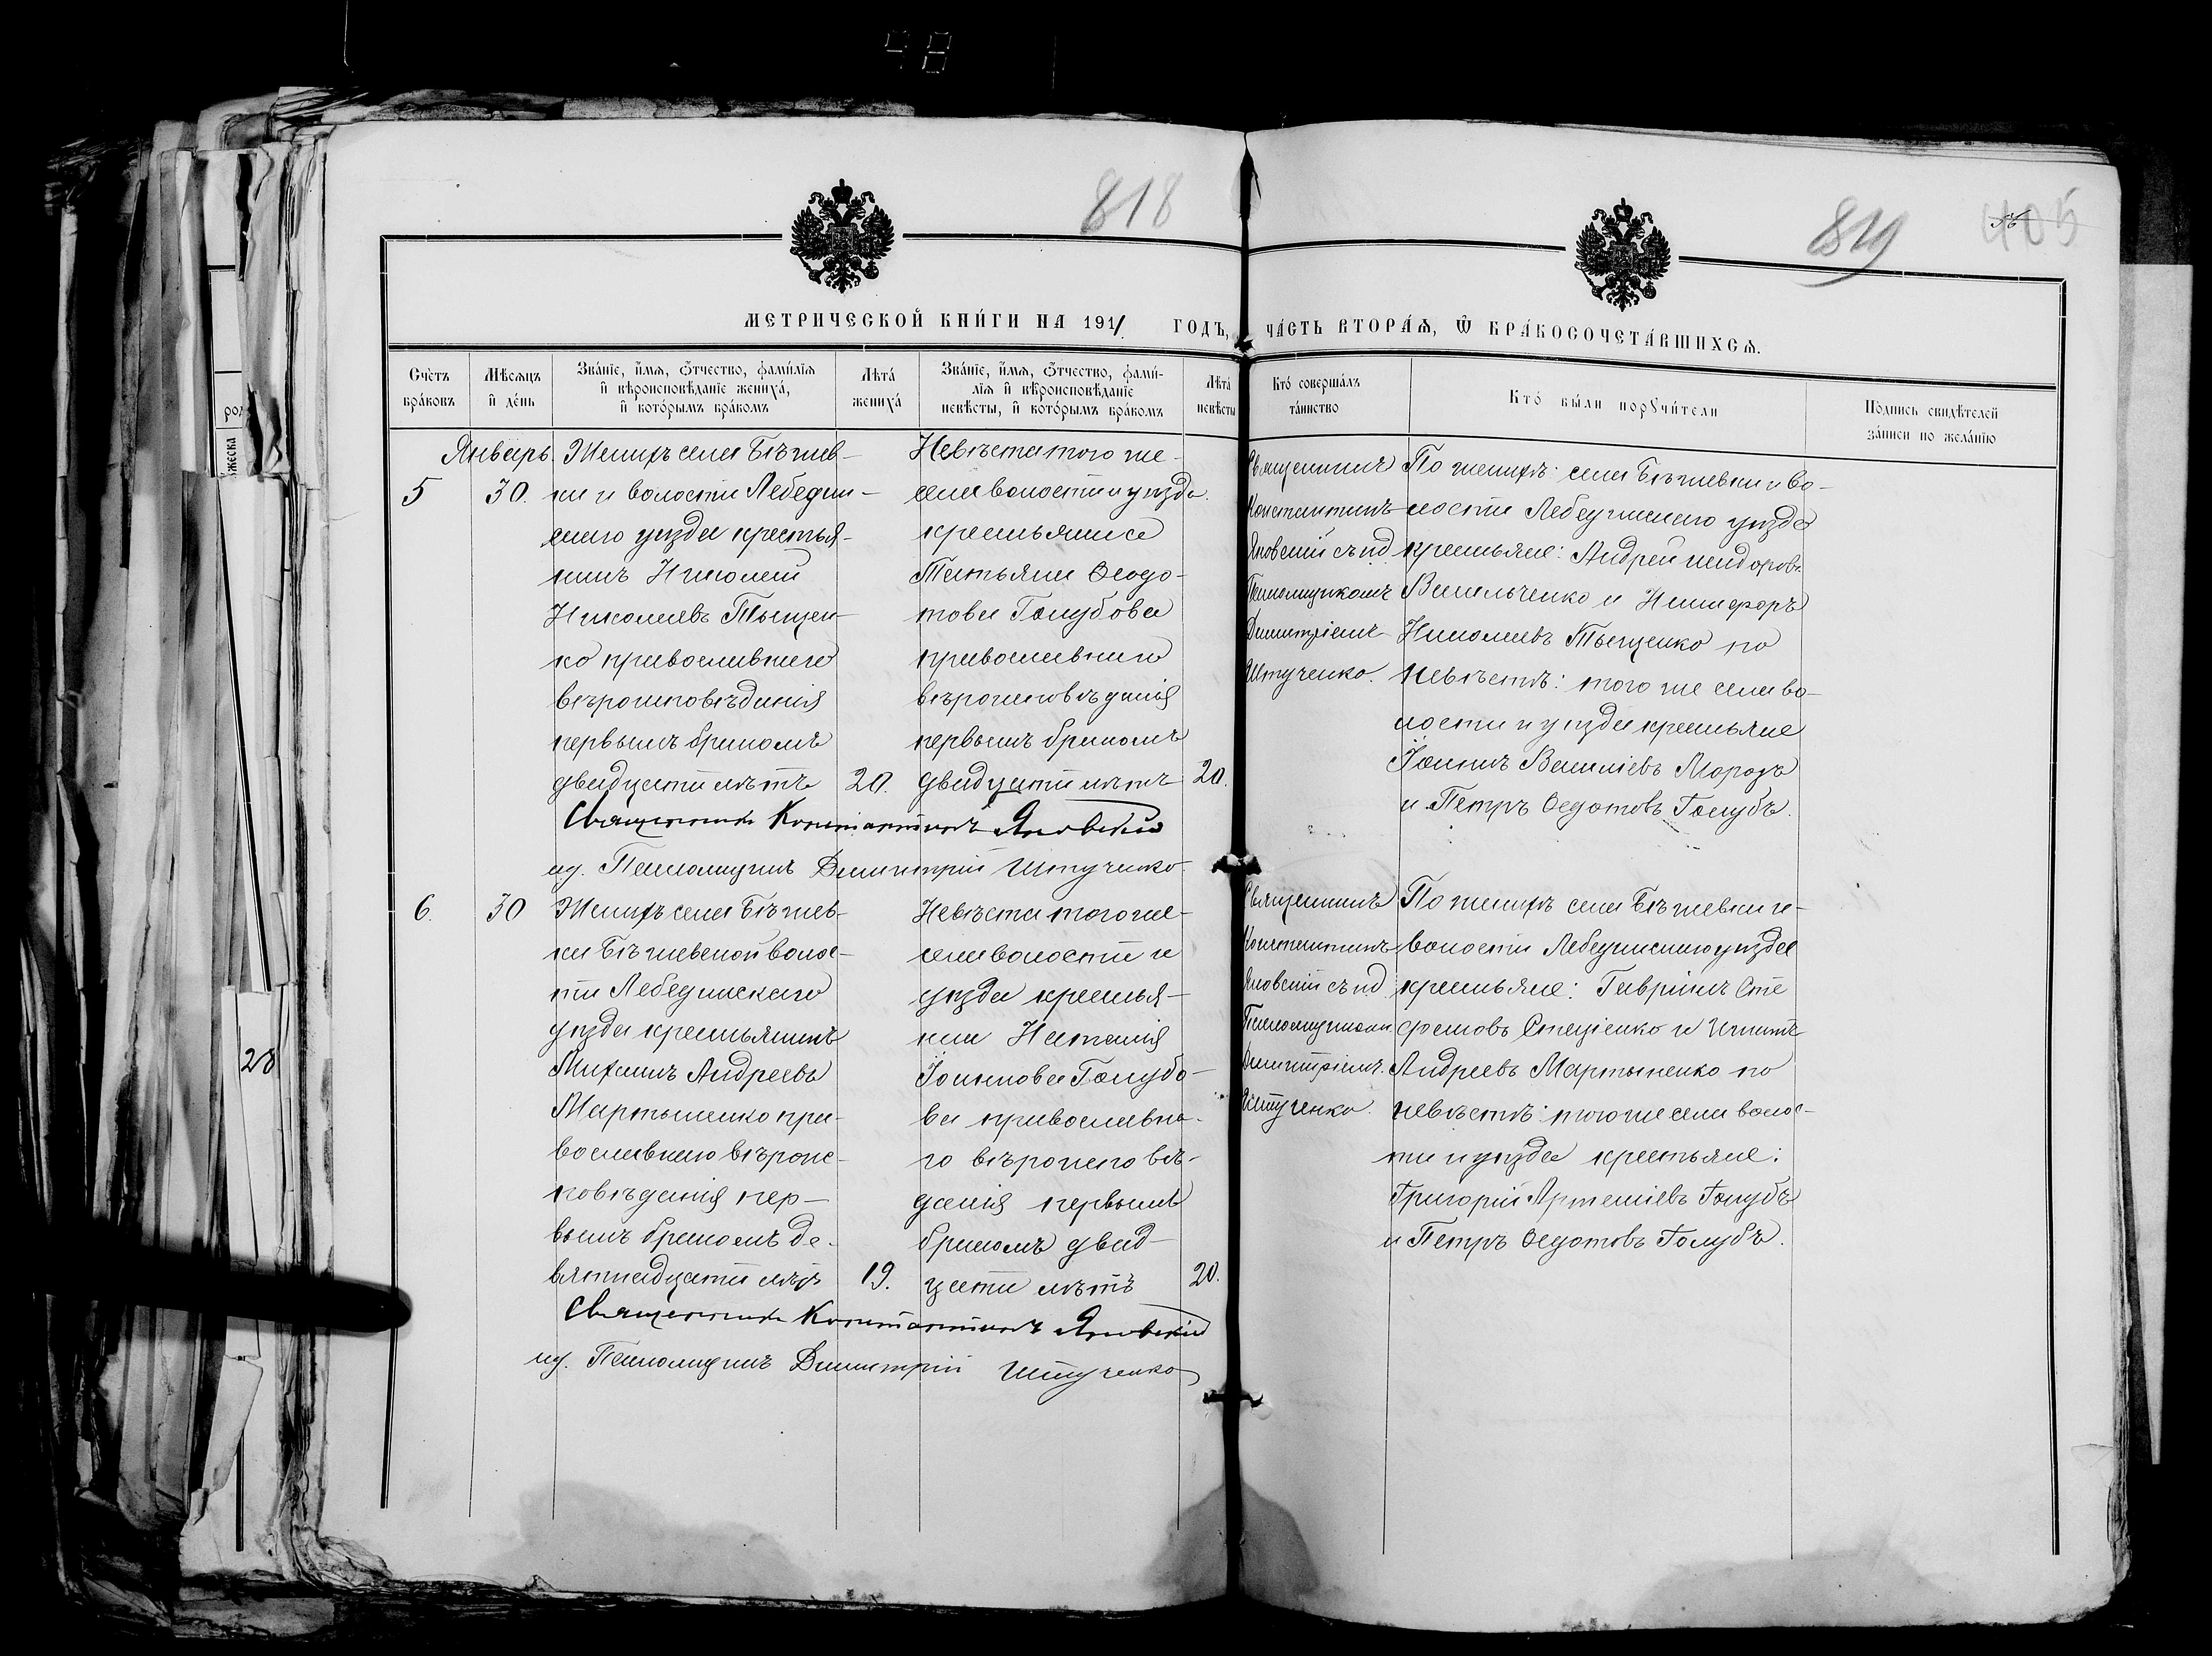 48
818
819
405
МЕТРИЧЕСКОЙ КНИ́ГИ НА 1911 ГОДЪ, ЧА́СТЬ ВТОРА́Ѧ, Ѽ БРА́КОСОЧЕТА́ВШИХСѦ.
Сче́тъ бра́ковъ
Мѣ́сѧцъ и҆ де́нь
Зва́нїе, и҆́мѧ, ѻ҆́тчество, фами́лїѧ и҆ вѣроисповѣ́данїе жениха̀, и҆ кото́рымъ бра́комъ
Лѣта̀ жениха̀
Зва́нїе, и҆́мѧ, ѻ҆́тчество, фами́лїѧ и҆ вѣроисповѣ́данїе невѣ́сты, и҆ кото́рымъ бра́комъ
Лѣта̀ невѣ́сты
Кто̀ соверша́лъ та́инство
Кто̀ бы́ли порꙋчи́тели
По́дпись свидѣ́телей за́писи по жела́нїю
Январь.
5
30.
Женихъ села Бѣжев-
ки и волости Лебедин-
скаго уѣзда крестья-
нинъ Николай
Николаевъ Тыщен-
ко православнаго
вѣроисповѣданія
первымъ бракомъ
двадцати лѣтъ
20.
Невѣста того же
села волости и уѣзда
крестьянка
Татьяна Ѳеодо-
това Голубова
православнаго
вѣроисповѣданія
первымъ бракомъ
двадцати лѣтъ
20.
Священникъ
Константинъ
Яновскій съ ид.
Псаломщикомъ
Димитріемъ
Штученко.
По женихѣ: села Бѣжевки и во-
лости Лебединскаго уѣзда
крестьяне: Андрей Исидоровъ
Васильченко и Никифоръ
Николаевъ Тыщенко по
невѣстѣ: того же села во-
лости и уѣзда крестьяне
Іоаннъ Василіевъ Морозъ
и Петръ Ѳедотовъ Голубъ.
Священникъ Константинъ Яновскій
ид. Псаломщикъ Димитрій Штученко.
6.
30
Женихъ села Бѣжев-
ки Бѣжевской волос-
ти Лебединскаго
уѣзда крестьянинъ
Михаилъ Андреевъ
Мартыненко пра-
вославнаго вѣроис-
повѣданія пер-
вымъ бракомъ де-
вятнадцати лѣтъ
19.
Невѣста того же
села волости и
уѣзда крестья-
нка Наталія
Іоаннова Голубо-
ва православна-
го вѣроисповѣ-
данія первымъ
бракомъ двад-
цати лѣтъ
20.
Священникъ
Константинъ
Яновскій съ ид
Псаломщикомъ
Димитріемъ
Штученко.
По женихѣ села Бѣжевки и
волости Лебединскаго уѣзда
крестьяне: Гавріилъ Сте
фановъ Стеценко и Игнатъ
Андреевъ Мартыненко по
невѣстѣ: того же села волос-
ти и уѣзда крестьяне:
Григорій Артеміевъ Голубъ
и Петръ Ѳедотовъ Голубъ.
Священникъ Константинъ Яновскій
ид. Псаломщикъ Димитрій Штученко
28